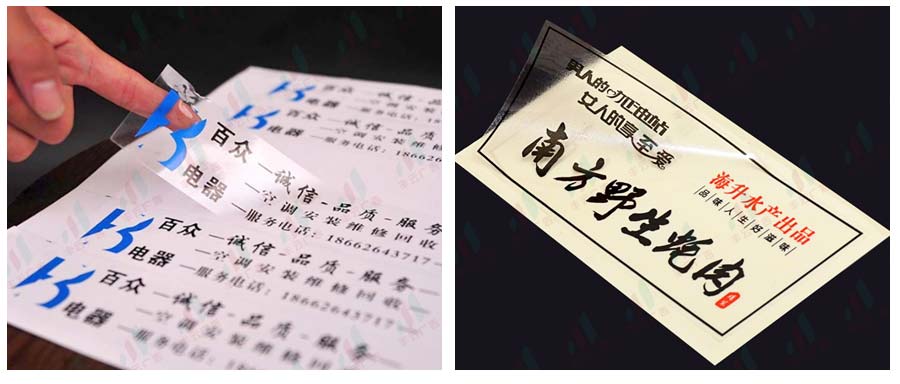 百众 电器
诚信-品质
空调安装维修
服务电话：186626
百众
—诚信-品质-服务
电器
—空调安装维修回收
—服务电话：18662643717—
百众
—诚信-品质-服务—
电器
—空调安装维修回收
—服务电话：18662643717—
百众
—诚信-品质-服务
电器
—空调安装维修
—服务电话：
男人的加油站
女人的身至爱
南方野生蚝肉
海升水产出品
|品|味|人|生|好|滋|味|